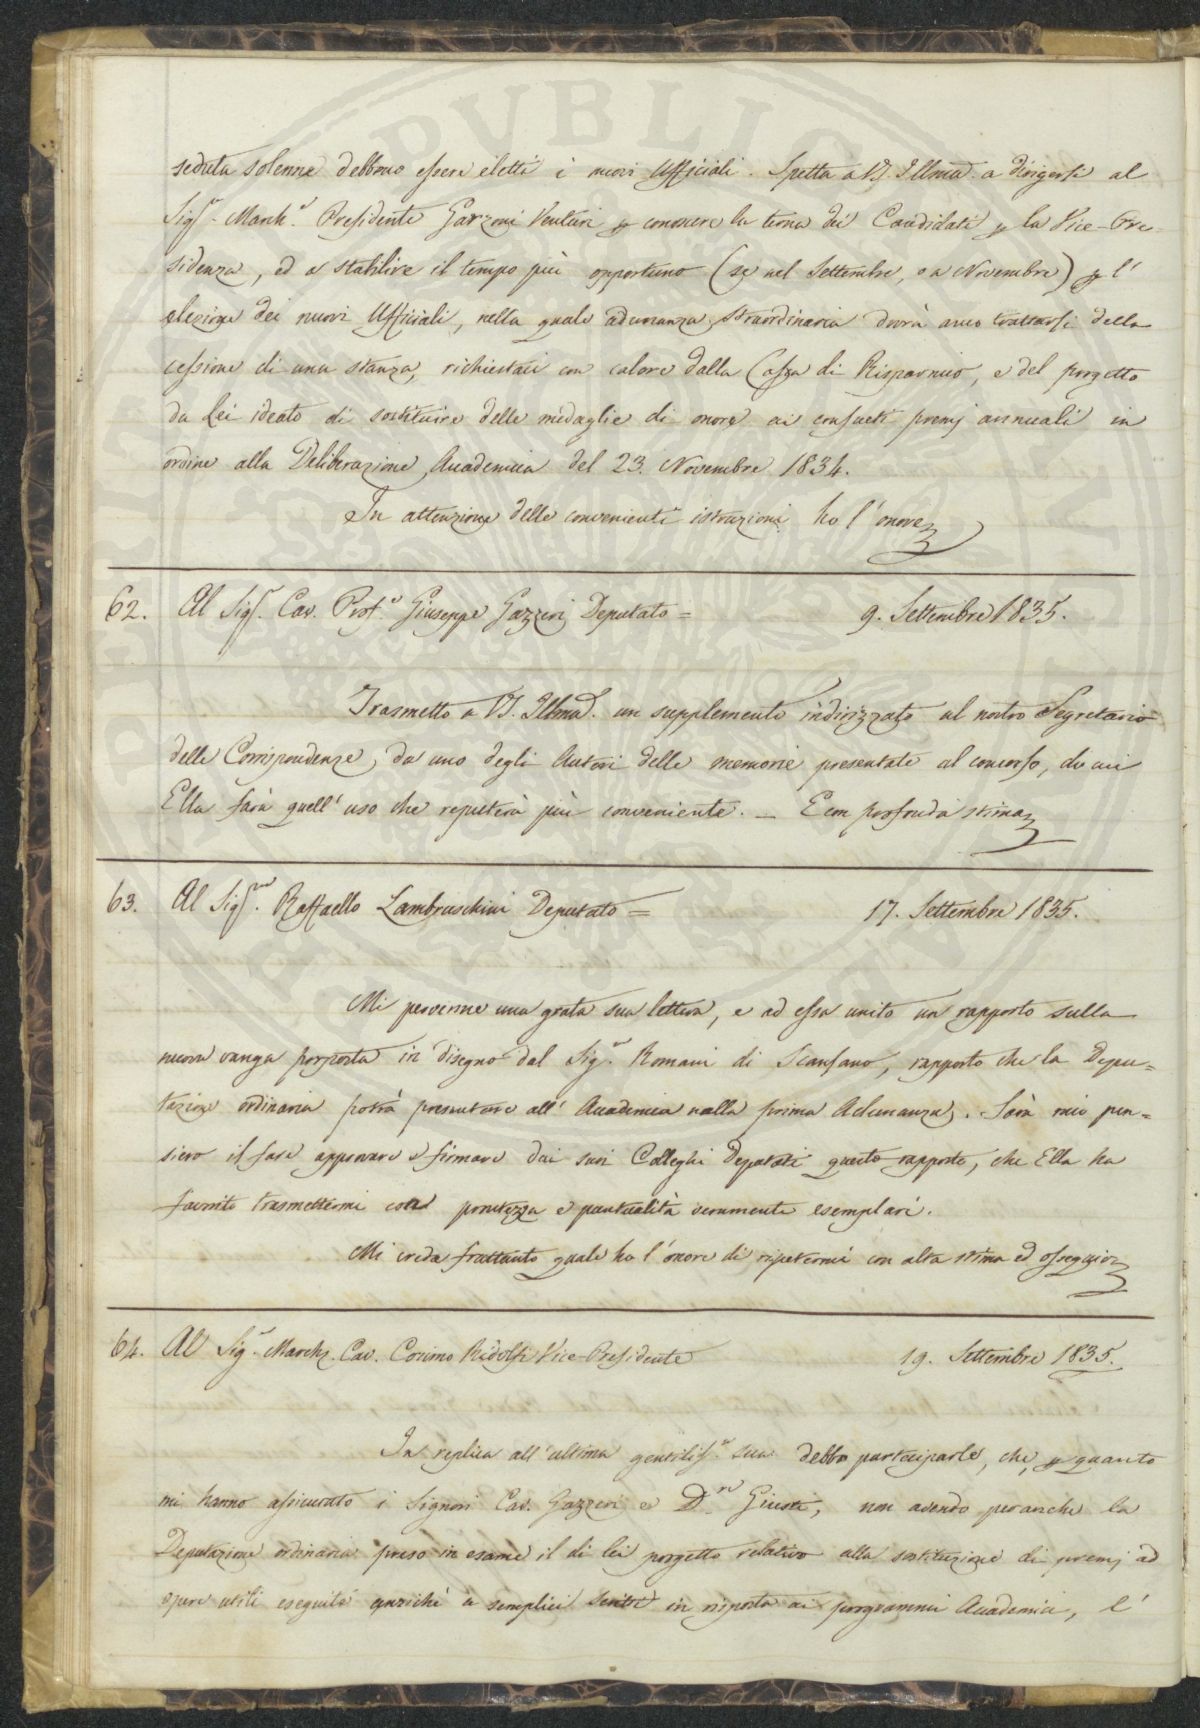 seduta solenne debbono essere eletti i nuovi Ufficiali. Spetta a VS. Illma. a dirigersi al
Sigr. March.e Presidente Garzoni Venturi p conoscere la terna dei Candidati p la Vice-Pre-
sidenza, ed a stabilire il tempo più opportuno (se nel Settembre, o a Novembre) p l'
elezione dei nuovi Ufficiali, nella quale adunanza straordinaria dovrà anco trattarsi della
cessione di una stanza, richiestaci con calore dalla Cassa di Risparmio, e del progetto
da Lei ideato di sostituire delle medaglie di onore ai consueti premj annuali in
ordine alla Deliberazione Accademica del 23. Novembre 1834.
In attenzione delle convenienti istruzioni ho l'onore
62. Al Sigr. Cav. Prof.e Giuseppe Gazzeri Deputato = 9. Settembre 1835.
Trasmetto a VS. Illma. un supplemento indirizzato al nostro Segretario
delle Corrispondenze, da uno degli Autori delle memorie presentate al concorso, di cui
Ella farà quell'uso che reputerà più conveniente. — E con profonda stima
63. Al Sigr. Raffaello Lambruschini Deputato = 17. Settembre 1835.
Mi pervenne una grata sua lettera, e ad essa unito un rapporto sulla
nuova vanga proposta in disegno dal Sigr. Romani di Scansano, rapporto che la Depu=
tazione ordinaria potrà presentare all'Accademia nella prima Adunanza. Sarà mio pen=
siero il fare approvare e firmare dai suoi Colleghi Deputati questo rapporto, che Ella ha
favorito trasmettermi con prontezza e puntualità veramente esemplari.
Mi creda frattanto quale ho l'onore di ripetermi con alta stima ed ossequio
64. Al Sigr. March. Cav. Cosimo Ridolfi Vice-Presidente 19. Settembre 1835.
In replica all'ultima gentiliss.a sua debbo parteciparle, che, p quanto
mi hanno assicurato i Signori Cav. Gazzeri e D.re Giusti, non avendo peranche la
Deputazione ordinaria preso in esame il di lei progetto relativo alla sostituzione di premj ad
opere utili eseguite anzichè a semplici scritti in risposta ai programmi Accademici, l'